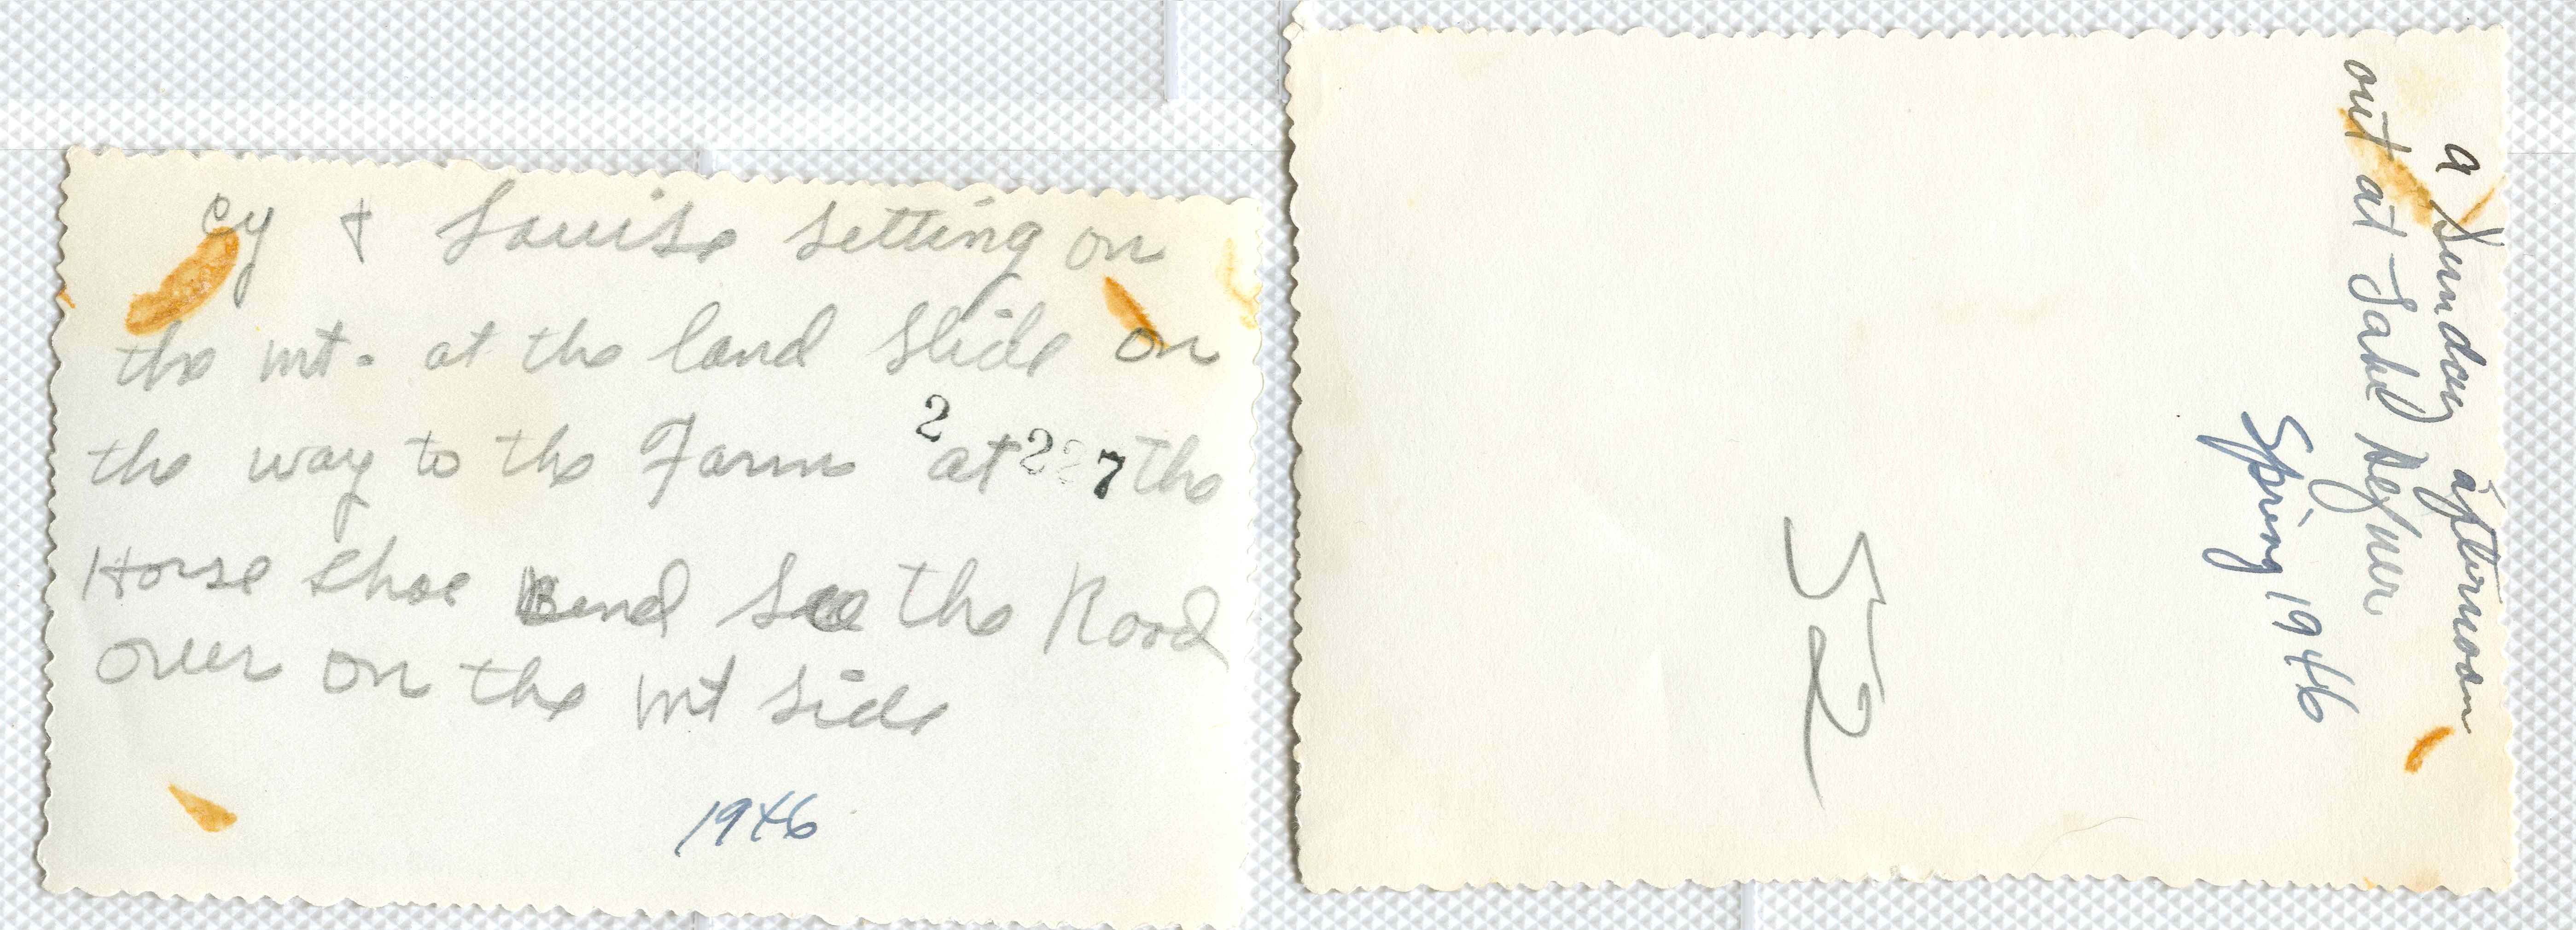 Cy + Louise setting on
the mt. at the land Slide on
the way to the Farm at the
2
227
Horse Shoe Bend See the Road
over on the mt side
1946
a Sunday afternoon
out at Lake
Spring 1946
52